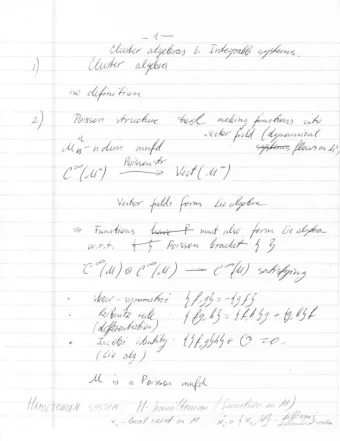 - 1 -
Cluster algebras & Integrable systems.
1) Cluster algebra
no definition
2) Poisson structure tool making functions into
vector field (dynamical
systems flows on M)
Mⁿ - n dim mfld
Poisson str
C^∞(Mⁿ) → Vect(Mⁿ)
Vector fields form Lie algebra
Functions must also form Lie algebra
w.r.t. Poisson bracket { }
C^∞(M) ⊗ C^∞(M) → C^∞(M) satisfying
• skew-symmetric {f,g} = -{g,f}
• Leibnitz rule : {fg,h} = f{g,h} +
(differentiation)
• Jacobi identity {{f,g},h} + ↻ = 0.
(Lie alg)
M is a Poisson mfld.
HAMILTONIAN SYSTEM H - hamiltonian (function on M)
xᵢ - local coord on M ẋᵢ = {xᵢ, H} -